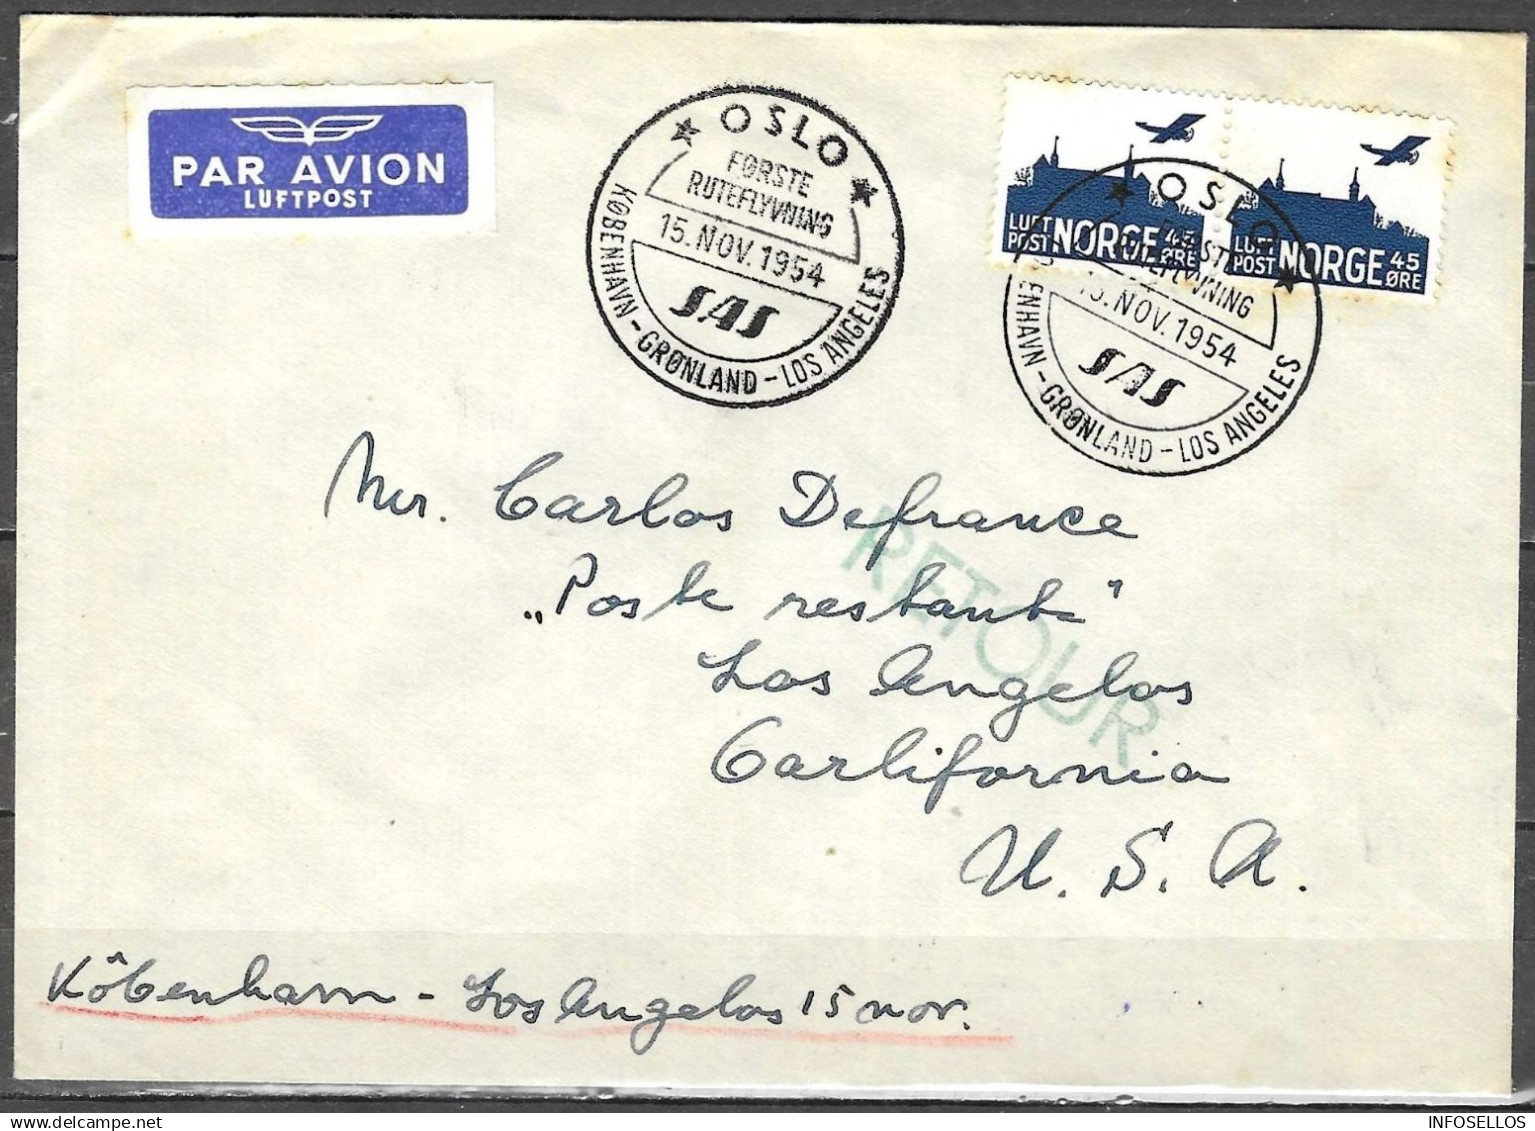 PAR AVION
LUFTPOST
★ OSLO ★
FØRSTE
RUTEFLYVNING
15. NOV. 1954
SAS
KØBENHAVN - GRØNLAND - LOS ANGELES
LUFT POST NORGE 45 ØRE
LUFT POST NORGE 45 ØRE
★ OSLO ★
FØRSTE
RUTEFLYVNING
15. NOV. 1954
SAS
KØBENHAVN - GRØNLAND - LOS ANGELES
Mr. Carlos Defrance
„Poste restante"
Los Angelos
Carlifornia
U. S. A.
RETOUR
Köbenhavn - Los Angelos 15 nov.
INFOSELLOS